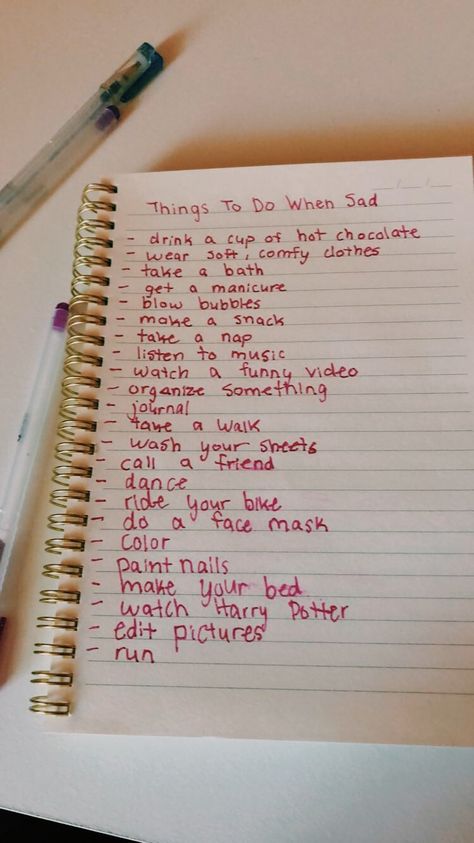 Things To Do When Sad
- drink a cup of hot chocolate
- wear soft, comfy clothes
- take a bath
- get a manicure
- blow bubbles
- make a snack
- take a nap
- listen to music
- watch a funny video
- organize something
- journal
- take a walk
- wash your sheets
- call a friend
- dance
- ride your bike
- do a face mask
- color
- paint nails
- make your bed
- watch Harry Potter
- edit pictures
- run